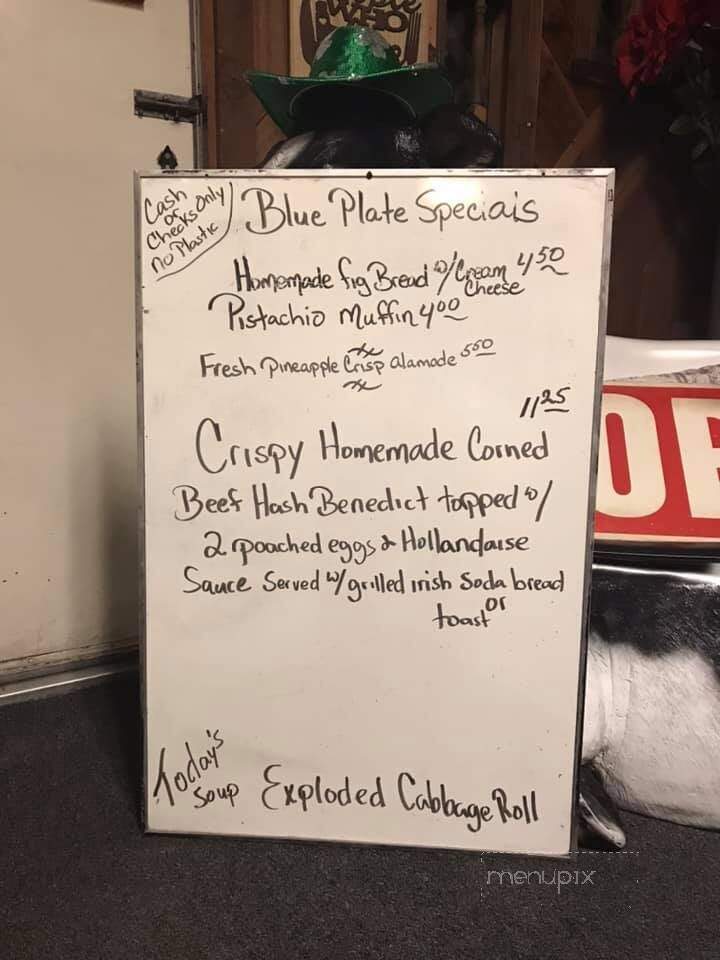 Cash
or
Checks Only
no Plastic
Blue Plate Specials
Homemade fig Bread w/Cream Cheese 4.50
Pistachio Muffin 4.00
Fresh Pineapple Crisp alamode 5.50
11.25
Crispy Homemade Corned
Beef Hash Benedict topped w/
2 poached eggs & Hollandaise
Sauce Served w/ grilled irish Soda bread
or
toast
Today's
Soup
Exploded Cabbage Roll
menupix